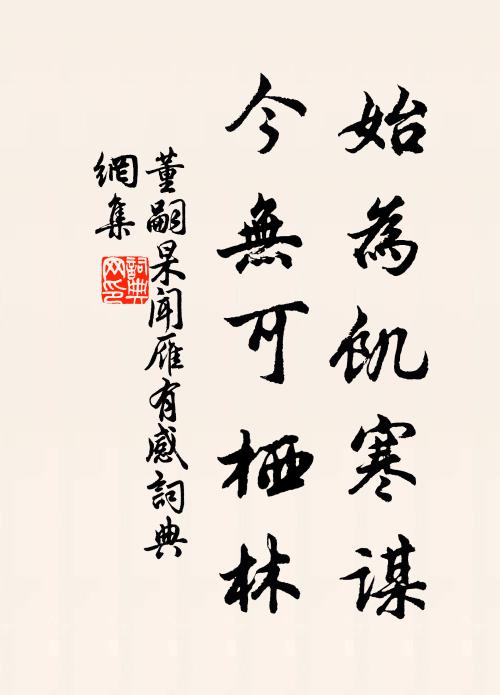 始為飢寒謀
今無可栖林
董嗣杲聞雁有感詞典
網集
詞典網印